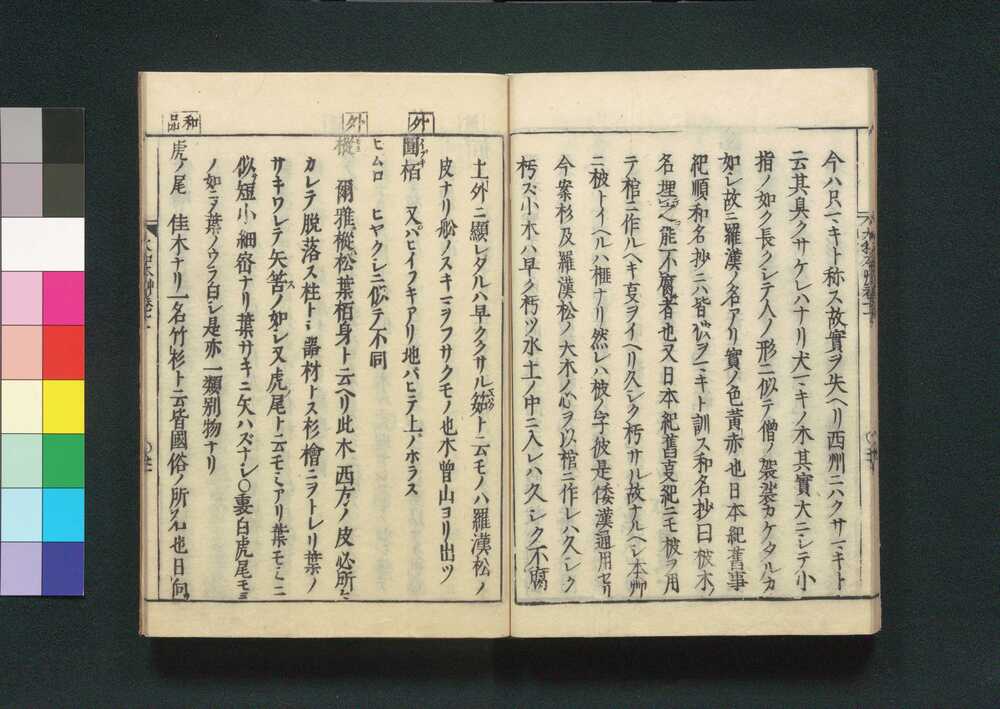 今ハ只一マキト称ス故實ヲ失ヘリ西州ニハクサマキト
云其臭クサケレハナリ犬マキノ木其實大ニシテ小
指ノ如ク長クシテ人ノ形ニ似テ僧ノ袈裟カケタルカ
如シ故ニ羅漢ノ名アリ實ノ色黄赤也日本紀舊事
紀順和名抄ニハ皆被ヲマキト訓ス和名抄曰被木
名埋之能不腐者也又日本紀舊事紀ニモ被ヲ用
テ棺ニ作ルヘキ事ヲイヘリ久シク朽サル故ナルヘシ本艸
ニ被トイヘルハ榧ナリ然レハ被ノ字彼是倭漢通用セリ
今案杉及羅漢松ノ大木ノ心ヲ以棺ニ作レハ久シク
朽ズ小木ハ早ク朽ツ水土ノ中ニ入レハ久シク不腐
土外ニ顯レタルハ早ククサル 如ト云モノハ羅漢松ノ
皮ナリ舩ノスキマヲフサクモノ也木曽山ヨリ出ツ
外
圓栢 又ハヒイフキアリ地ハヒテ上ノホラス
ヒムロ ヒヤクシニ似テ不同
外
樅 爾雅樅松葉栢身ト云ヘリ此木西方ノ皮必所
カレテ脱落ス柱トシ器材トス杉檜ニヲトレリ葉ノ
サキワレテ矢筈ノ如シ又虎尾ト云モミアリ葉モミニ
似短小細密ナリ葉サキニ矢ハズナシ○裏白虎尾モミ
ノ如ニテ葉ノウラ白シ是亦一類別物ナリ
和品
虎ノ尾 佳木ナリ一名竹杉ト云皆國俗ノ所名也日向